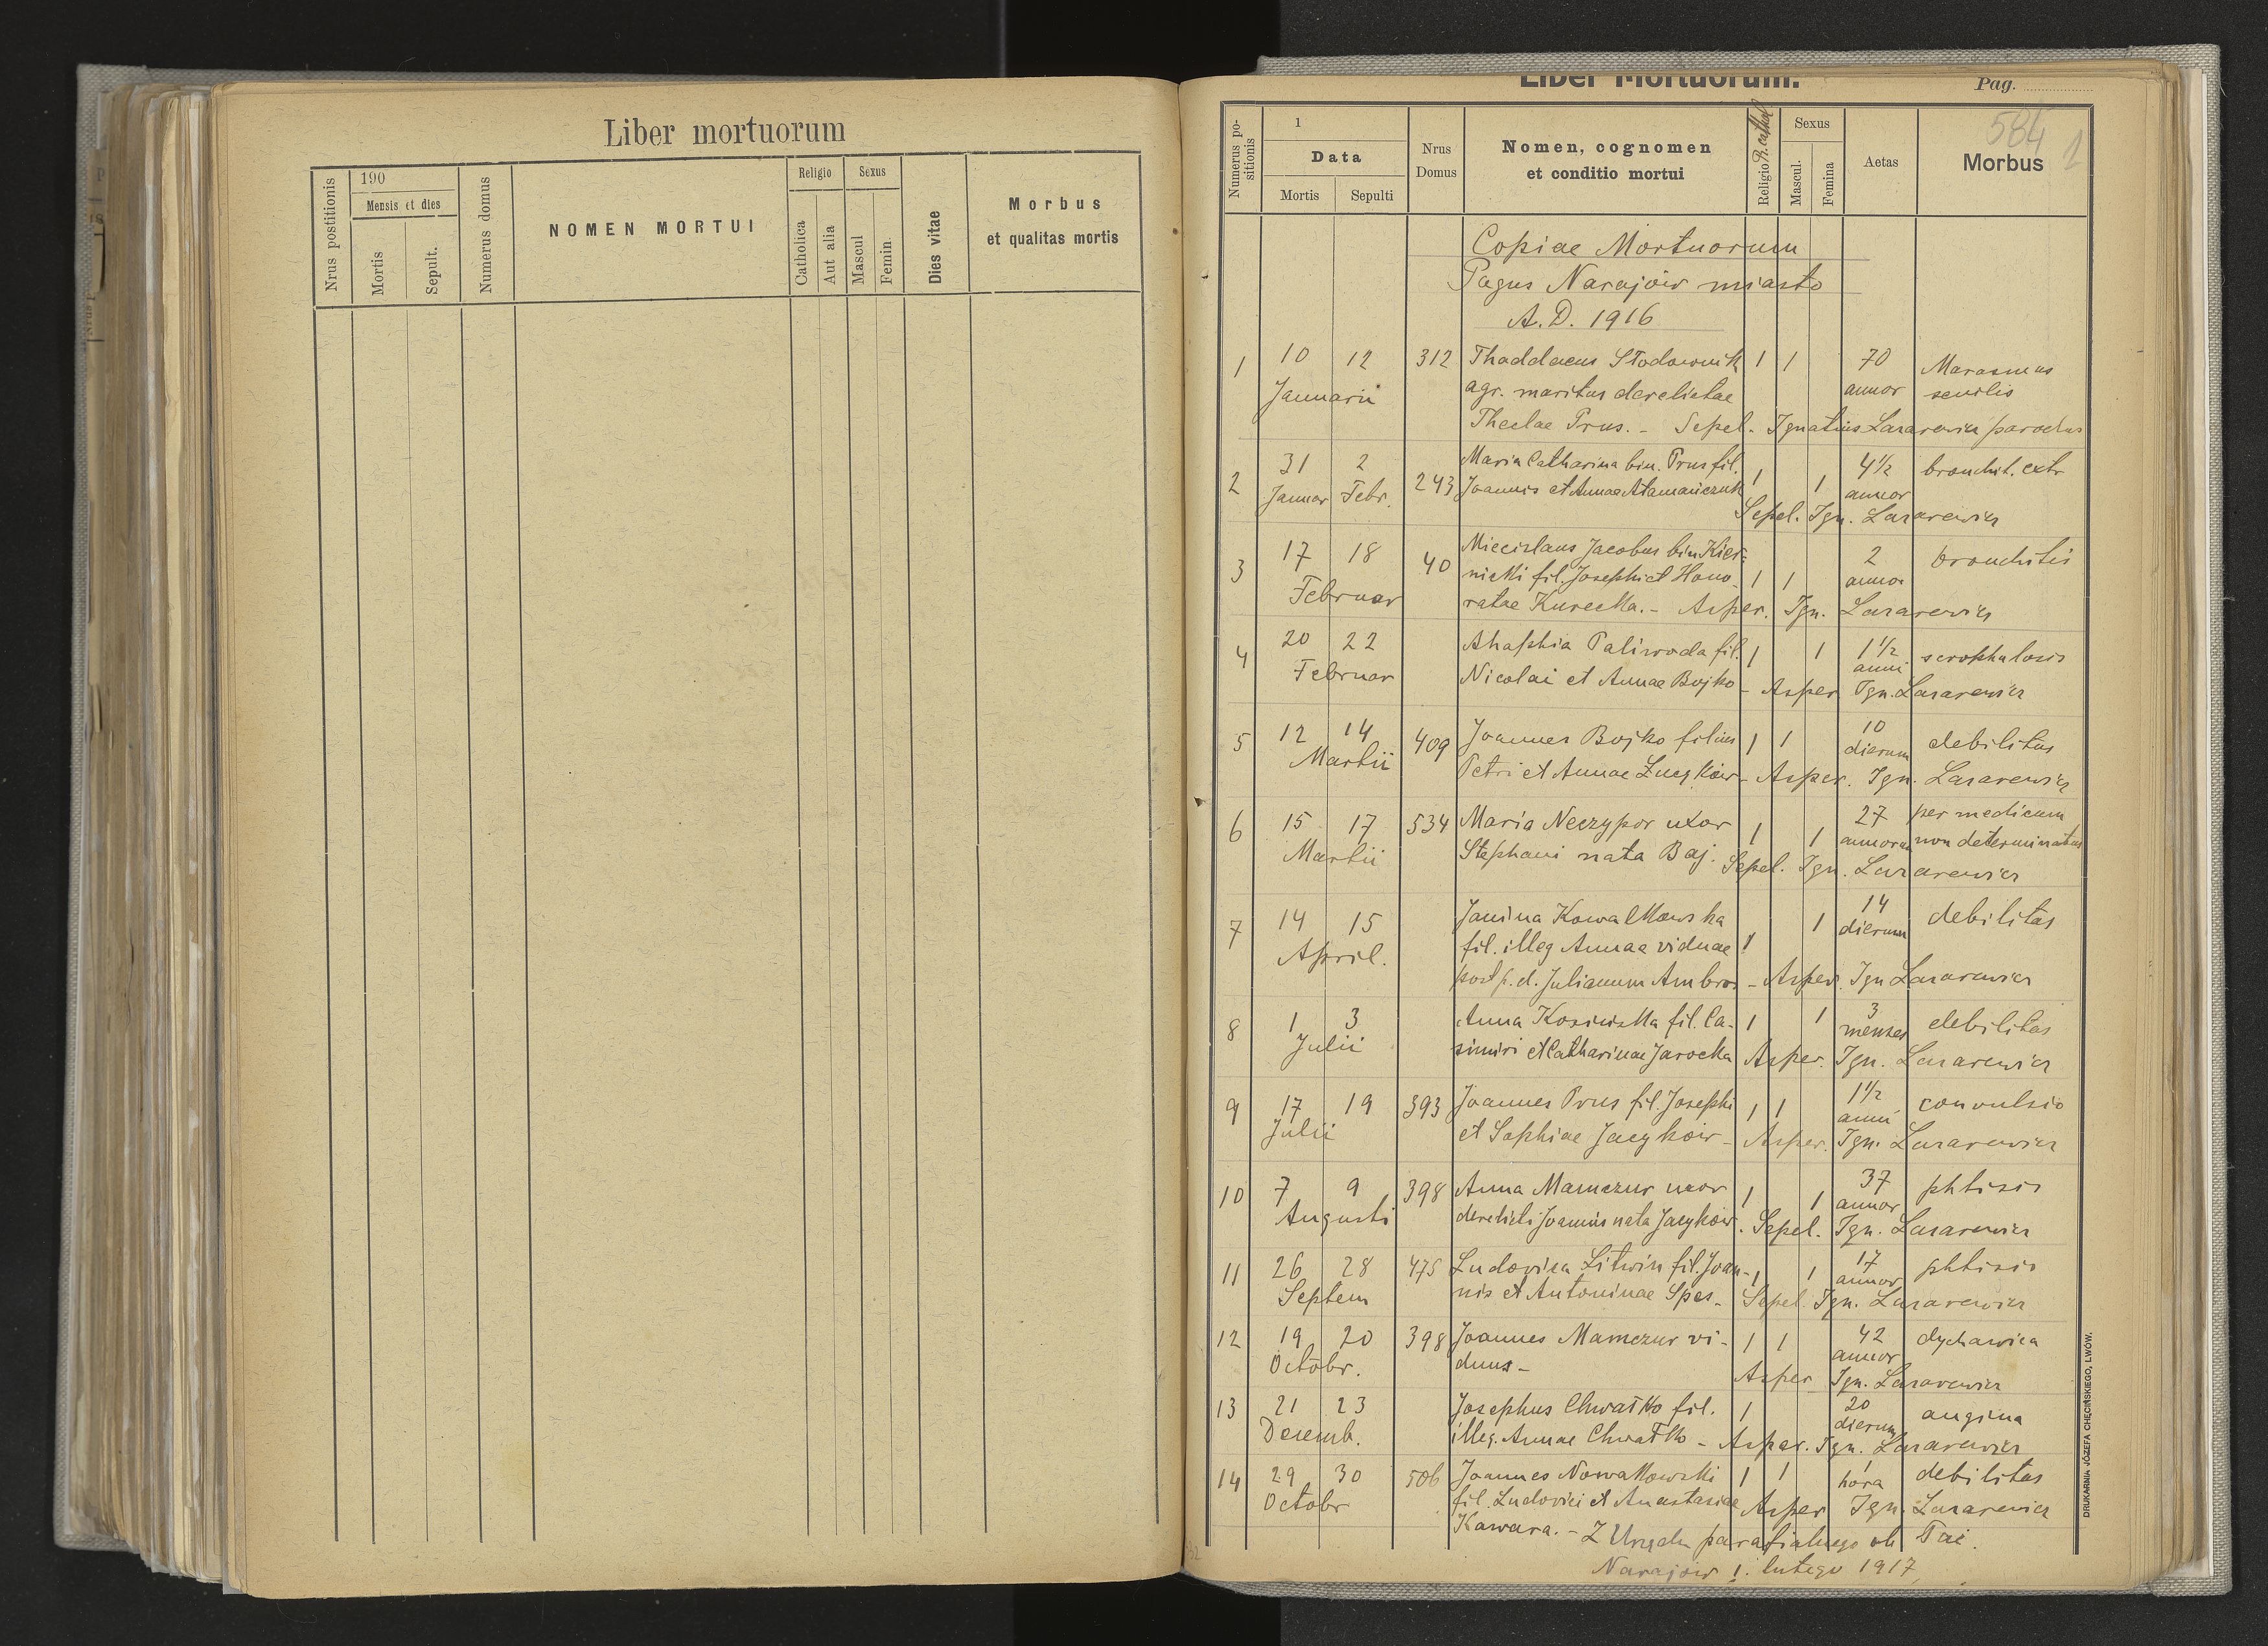 Liber mortuorum
Nrus postitionis
190
Mensis et dies
Mortis
Sepult.
Numerus domus
NOMEN MORTUI
Religio
Catholica
Aut alia
Sexus
Mascul
Femin.
Dies vitae
Morbus
et qualitas mortis
Liber Mortuorum.
Pag.
584
Numerus po-
sitionis
1
Data
Mortis
Sepulti
Nrus
Domus
Nomen, cognomen
et conditio mortui
Religio R. cathol
Sexus
Mascul.
Femina
Aetas
Morbus
Copiae Mortuorum
Pagus Narajów miasto
A.D. 1916
1 10 12 312 Thaddaeus Słodownik 1 1 70 Marasmus
Januarii agr. maritus derelictae annor senilis
Theclae Prus. - Sepel. Ignatius Lazarewicz parochus
2 31 2 243 Maria Catharina bin. Prus fil. 1 1 4½ bronchit. extr
Januar Febr. Joannis et Annae Atamańczuk annor
Sepel. Ign. Lazarewicz
3 17 18 40 Miecislaus Jacobus bin Kier- 2 bronchitis
Februar nicki fil. Josephi et Hono- 1 1 annor
ratae Kurecka. - Asper. Ign. Lazarewicz
4 20 22 Ahaphia Paliwoda fil. 1 1 1½ scrophulosis
Februar Nicolai et Annae Bojko - anni Asper Ign. Lazarewicz
5 12 14 409 Joannes Bojko filius 1 1 10 debilitas
Martii Petri et Annae - dierum Asper. Ign. Lazarewicz
6 15 17 534 Maria Neczypor uxor 1 1 27 per medicum
Martii Stephani nata Baj. annorum non determinatus
Sepel. Ign. Lazarewicz
7 14 15 Janina Kowalkowska 1 14 debilitas
April. fil. illeg Annae viduae 1 dierum
post p. d. Julianum Ambros. - Asper. Ign Lazarewicz
8 1 3 Anna Kosińska fil. Ca- 1 1 3 debilitas
Julii simiri et Catharinae Jarocka menses Asper. Ign. Lazarewicz
9 17 19 393 Joannes Prus fil. Josephi 1 1 1½ convulsio
Julii et Sophiae Jacyków - anni Asper. Ign. Lazarewicz
10 7 9 398 Anna Mamczur uxor 1 1 37 phtisis
Augusti derelicti Joannis nata Jacyków. annor Sepel. Ign. Lazarewicz
11 26 28 475 Ludovica Litwin fil. Joan- 1 1 17 phtisis
Septem nis et Antoninae Spas - annor Sepel. Ign. Lazarewicz
12 19 20 398 Joannes Mamczur vi- 1 1 42 dychawica
Octobr. duus - annor
Asper Ign. Lazarewicz
13 21 23 Josephus Chwałko fil. 1 20 angina
Decemb. illeg. Annae Chwałko - dierum Asper. Ign. Lazarewicz
14 29 30 506 Joannes Nowakowski 1 1 1 debilitas
Octobr fil. Ludovici et Anastasiae hora Asper Ign. Lazarewicz
Kawara. - Z Urzędu parafialnego ob łac.
Narajów 1. lutego 1917
DRUKARNIA JÓZEFA CHĘCIŃSKIEGO, LWÓW.